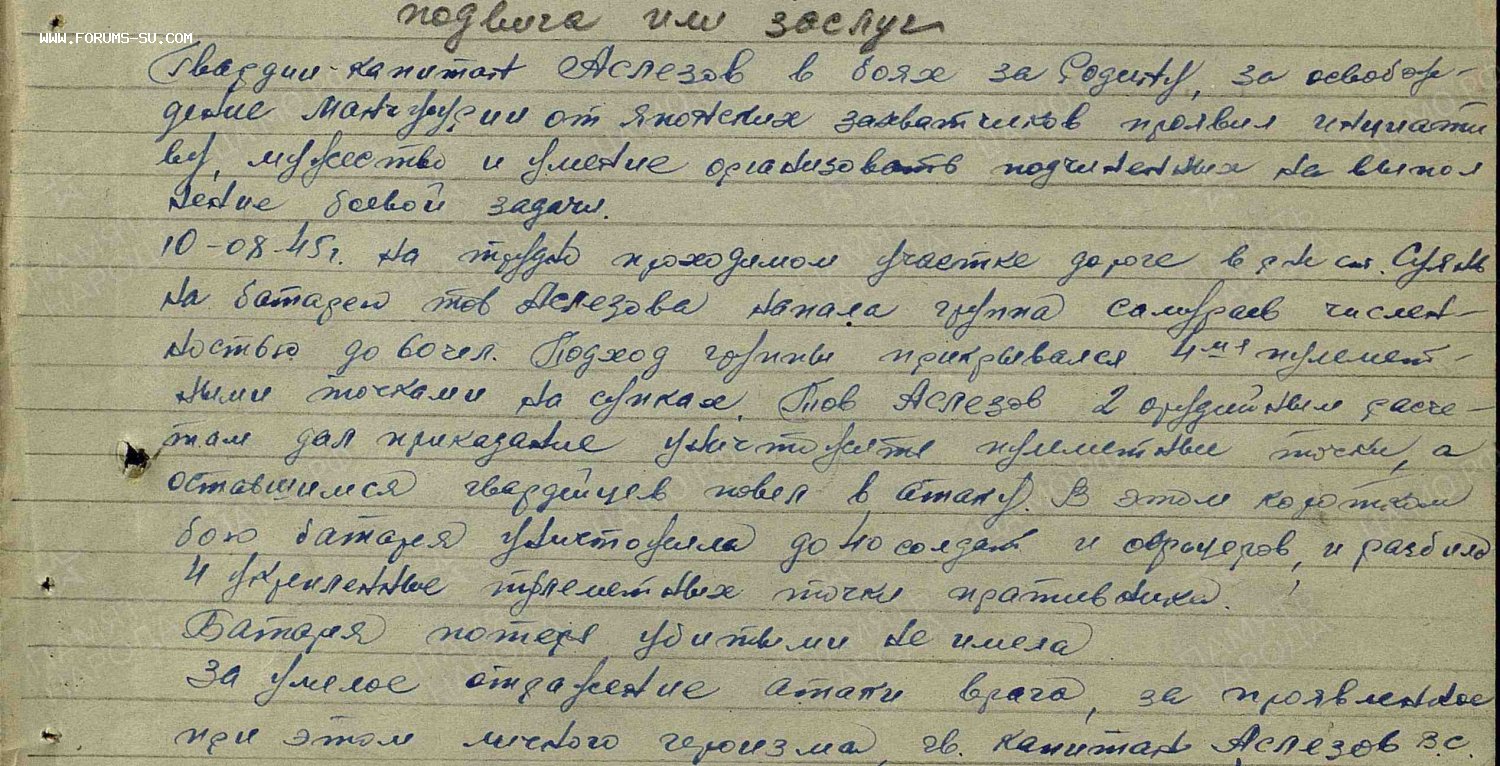 подвига или заслуг
WWW.FORUMS-SU.COM
Гвардии-капитан Аслезов в боях за Родину, за освобож-
дение Манчжурии от японских захватчиков проявил инициати
ву, мужество и умение организовать подчиненных на выпол
нение боевой задачи.
10-08-45г. на трудно проходимом участке дороге в р-не ст. Суянь
на батарею тов Аслезова напала группа самураев числен-
ностью до 60 чел. Подход группы прикрывался 4мя пулемет-
ными точками на сопках. Тов Аслезов 2 орудийным расче-
там дал приказание уничтожить пулеметные точки, а
оставшимся гвардейцев повел в атаку. В этом коротком
бою батарея уничтожила до 40 солдат и офицеров, и разбила
4 укрепленные пулеметных точки противника.
Батарея потерь убитыми не имела
За умелое отражение атаки врага, за проявленное
при этом личного героизма, гв. капитан Аслезов В.С.